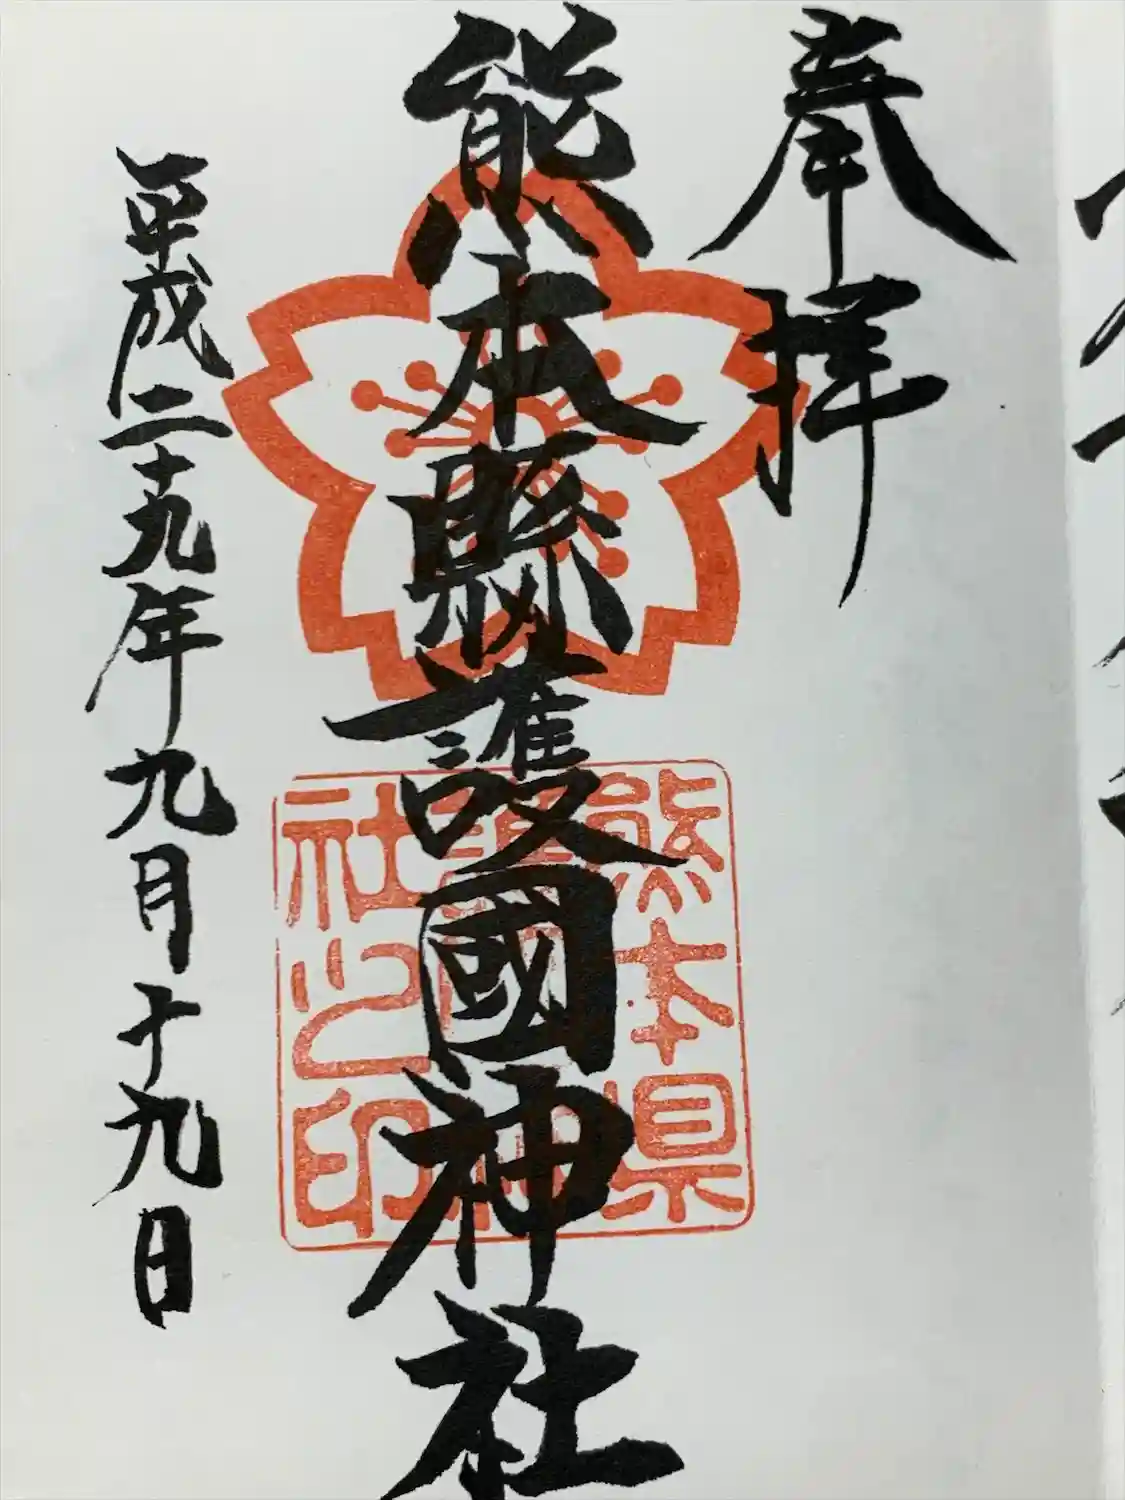 奉拝
熊本縣護國神社
熊本県
社之印
平成二十九年九月十九日